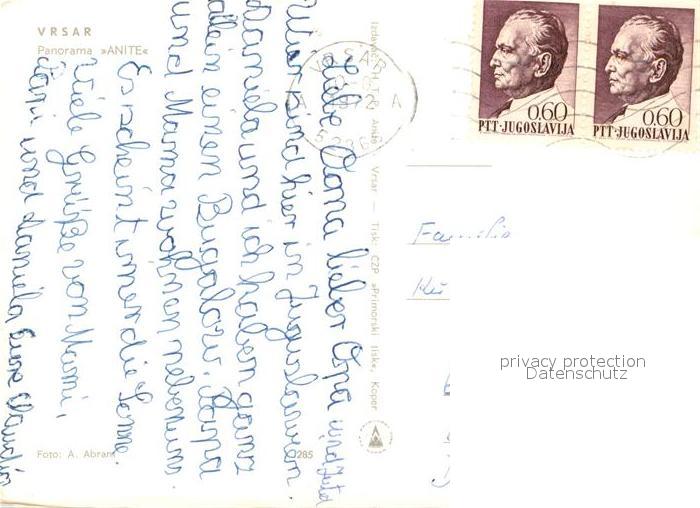 VRSAR
Panorama »ANITE«
Liebe Oma lieber Opa und Jutta
Wir sind hier in Jugoslawien
Daniela und ich haben ganz
allein einen Bugalow. Papa
und Mama wohnen nebenan.
Es scheint imer die Sonne.
Viele Grüße von Mami,
Papi und Daniela Eure Claudia
Foto: A. Abram
285
Izdavač H.T.P. Anite Vrsar — Tisk: ČZP »Primorski tisk«, Koper
VRSAR
0.60
PTT·JUGOSLAVIJA
0.60
PTT·JUGOSLAVIJA
Familie
privacy protection
Datenschutz